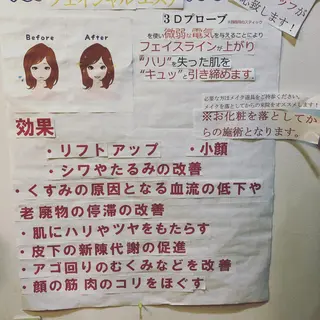 フェイシャルエステ
応致します!
Before
After
3Dプローブ
を使い微弱な電気を与えることにより
フェイスラインが上がり
"ハリ"を失った肌を
"キュッ"と引き締めます。
必要な方はメイク道具をご持参ください。
メイクを落としてからの来院をオススメします!
※お化粧を落として
からの施術となります。
効果
・リフトアップ ・小顔
・シワやたるみの改善
・くすみの原因となる血流の低下や
老廃物の停滞の改善
・肌にハリやツヤをもたらす
・皮下の新陳代謝の促進
・アゴ回りのむくみなどを改善
・顔の筋肉のコリをほぐす